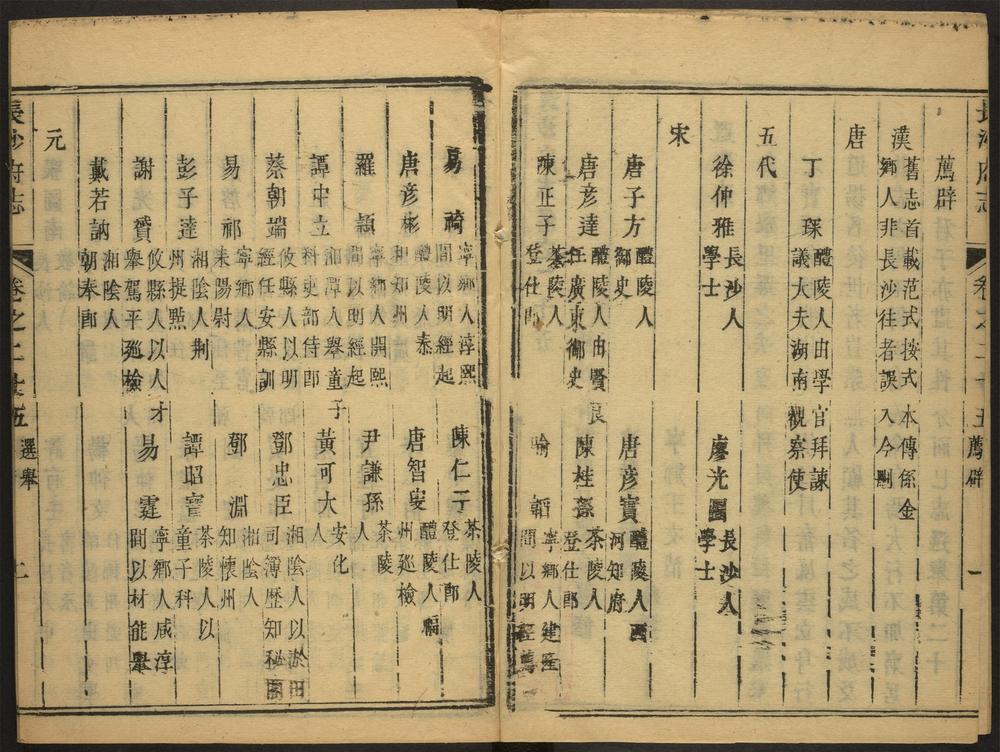 薦辟
漢
舊志首載范式按式本傳係金
鄉人非長沙往者誤入今刪
唐
丁琛
醴陵人由學官拜諫
議大夫湖南觀察使
五代
徐仲雅
長沙人
學士
廖光圖
長沙人
學士
宋
唐子方
醴陵人
御史
唐彥寳
醴陵人
河知府
唐彥達
醴陵人由賢良
任廣東御史
陳桂孫
茶陵人
登仕郎
陳正子
茶陵人
登仕郎
喻韜
寧鄉人建
間以明經
易祹
寧鄉人淳熙
間以明經起
陳仁子
茶陵人
登仕郎
唐彥彬
醴陵人泰
和知州
唐智叟
醴陵人
州廵檢
羅頴
寧鄉人開熙
間以明經起
尹謙孫
茶陵
人
譚中立
湘潭人舉童子
科吏部侍郎
黃可大
安化
人
蔡朝端
攸縣人以明
經任安縣訓
鄧忠臣
湘陰人以
司簿歷知秘
易祁
寧鄉人
耒陽尉
鄧淵
湘陰人
知懷州
彭子達
湘陰人荆
州提㸃
譚昭寳
茶陵人以
童子科
謝光賛
攸縣人以人才
舉駕平廵檢
易霆
寧鄉人咸淳
間以材能舉
戴若訥
湘陰人
朝奉郎
元
長沙府志
卷之二十五
選舉